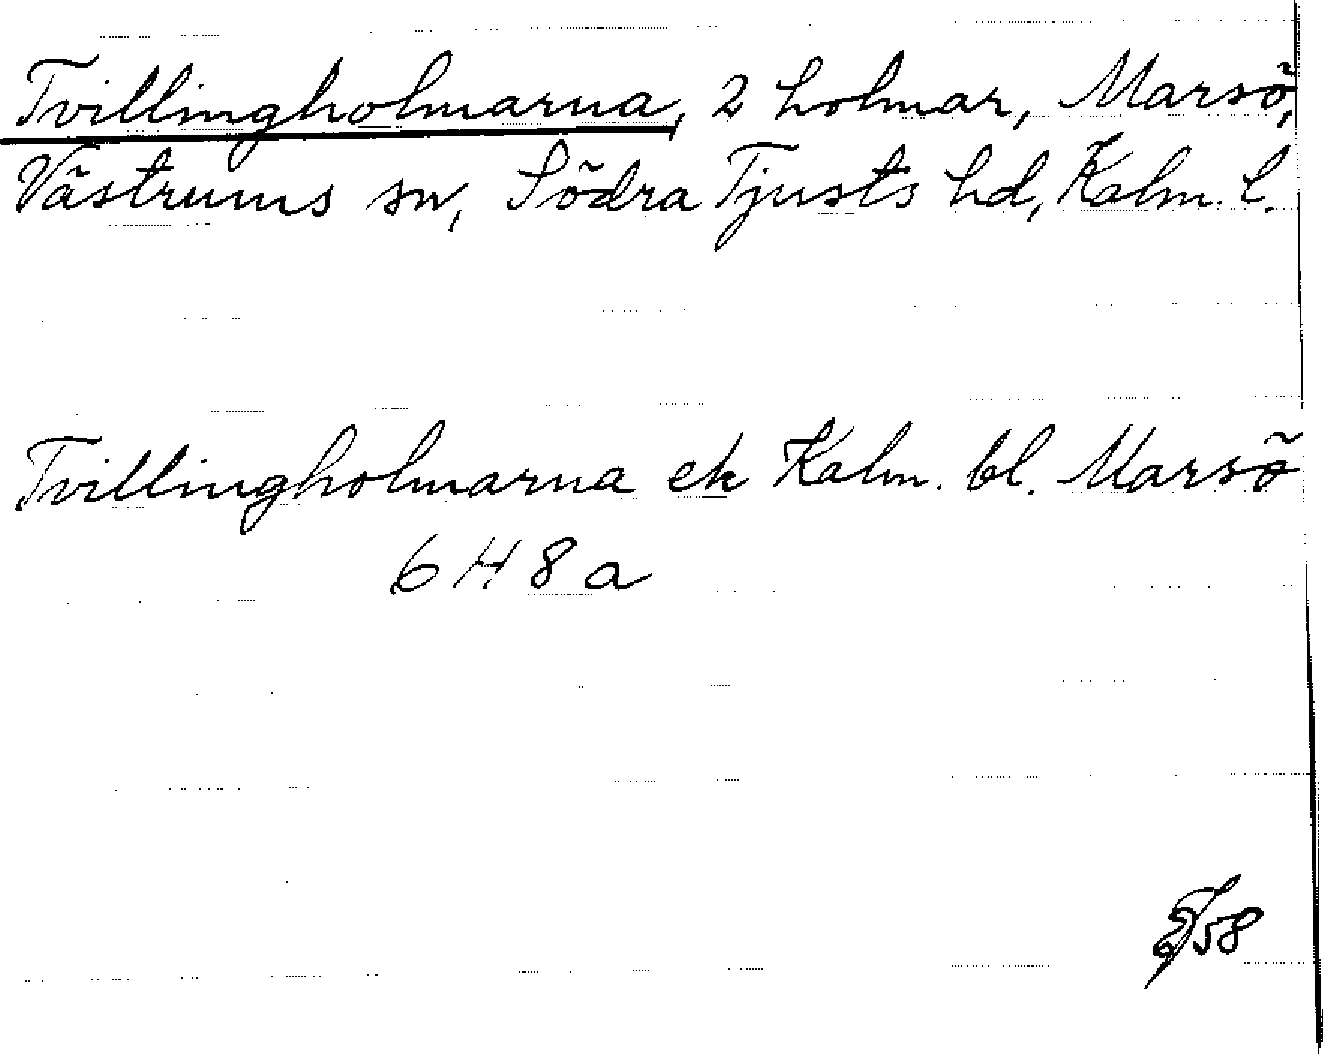 Tvillingholmarna, 2 holmar, Marsö,
Västrums sn, Södra Tjusts hd, Kalm. l.
Tvillingholmarna ek Kalm. bl. Marsö
6 H 8 a
58